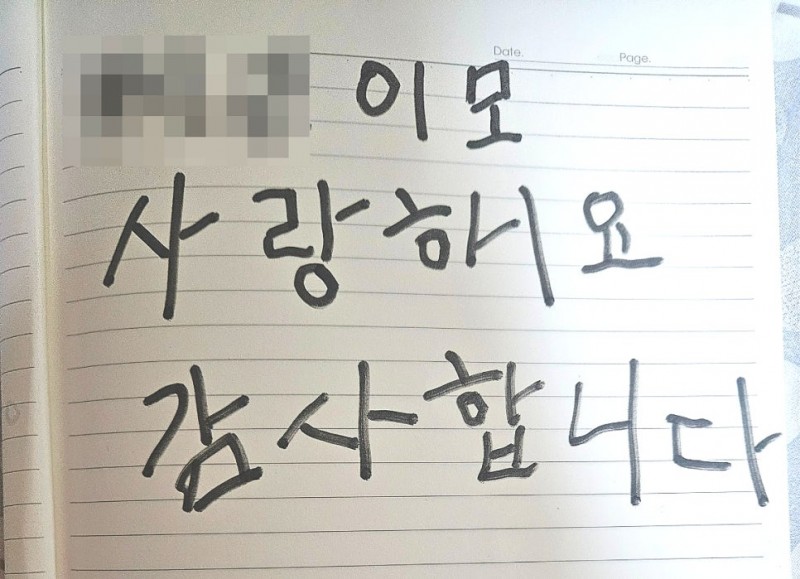 Date. Page.
이모
사랑해요
감사합니다